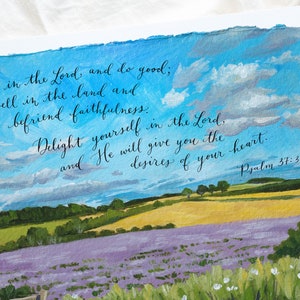 in the Lord, and do good;
in the land and
befriend faithfulness.
Delight yourself in the Lord,
and He will give you the
desires of your heart.
Psalm 37:3